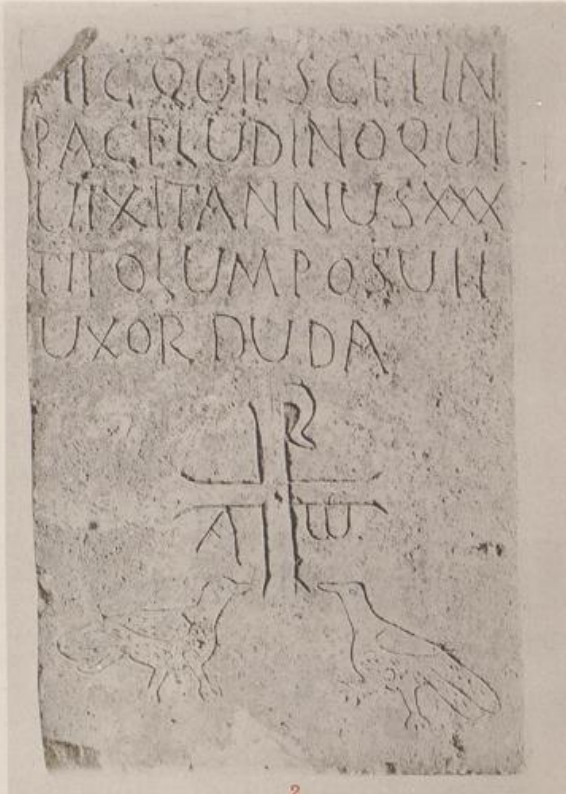 HIC QUIESCET IN
PACE LUDINO QUI
UIXIT ANNUS XXX
TITOLUM POSUIT
UXOR DUDA
A ω
2